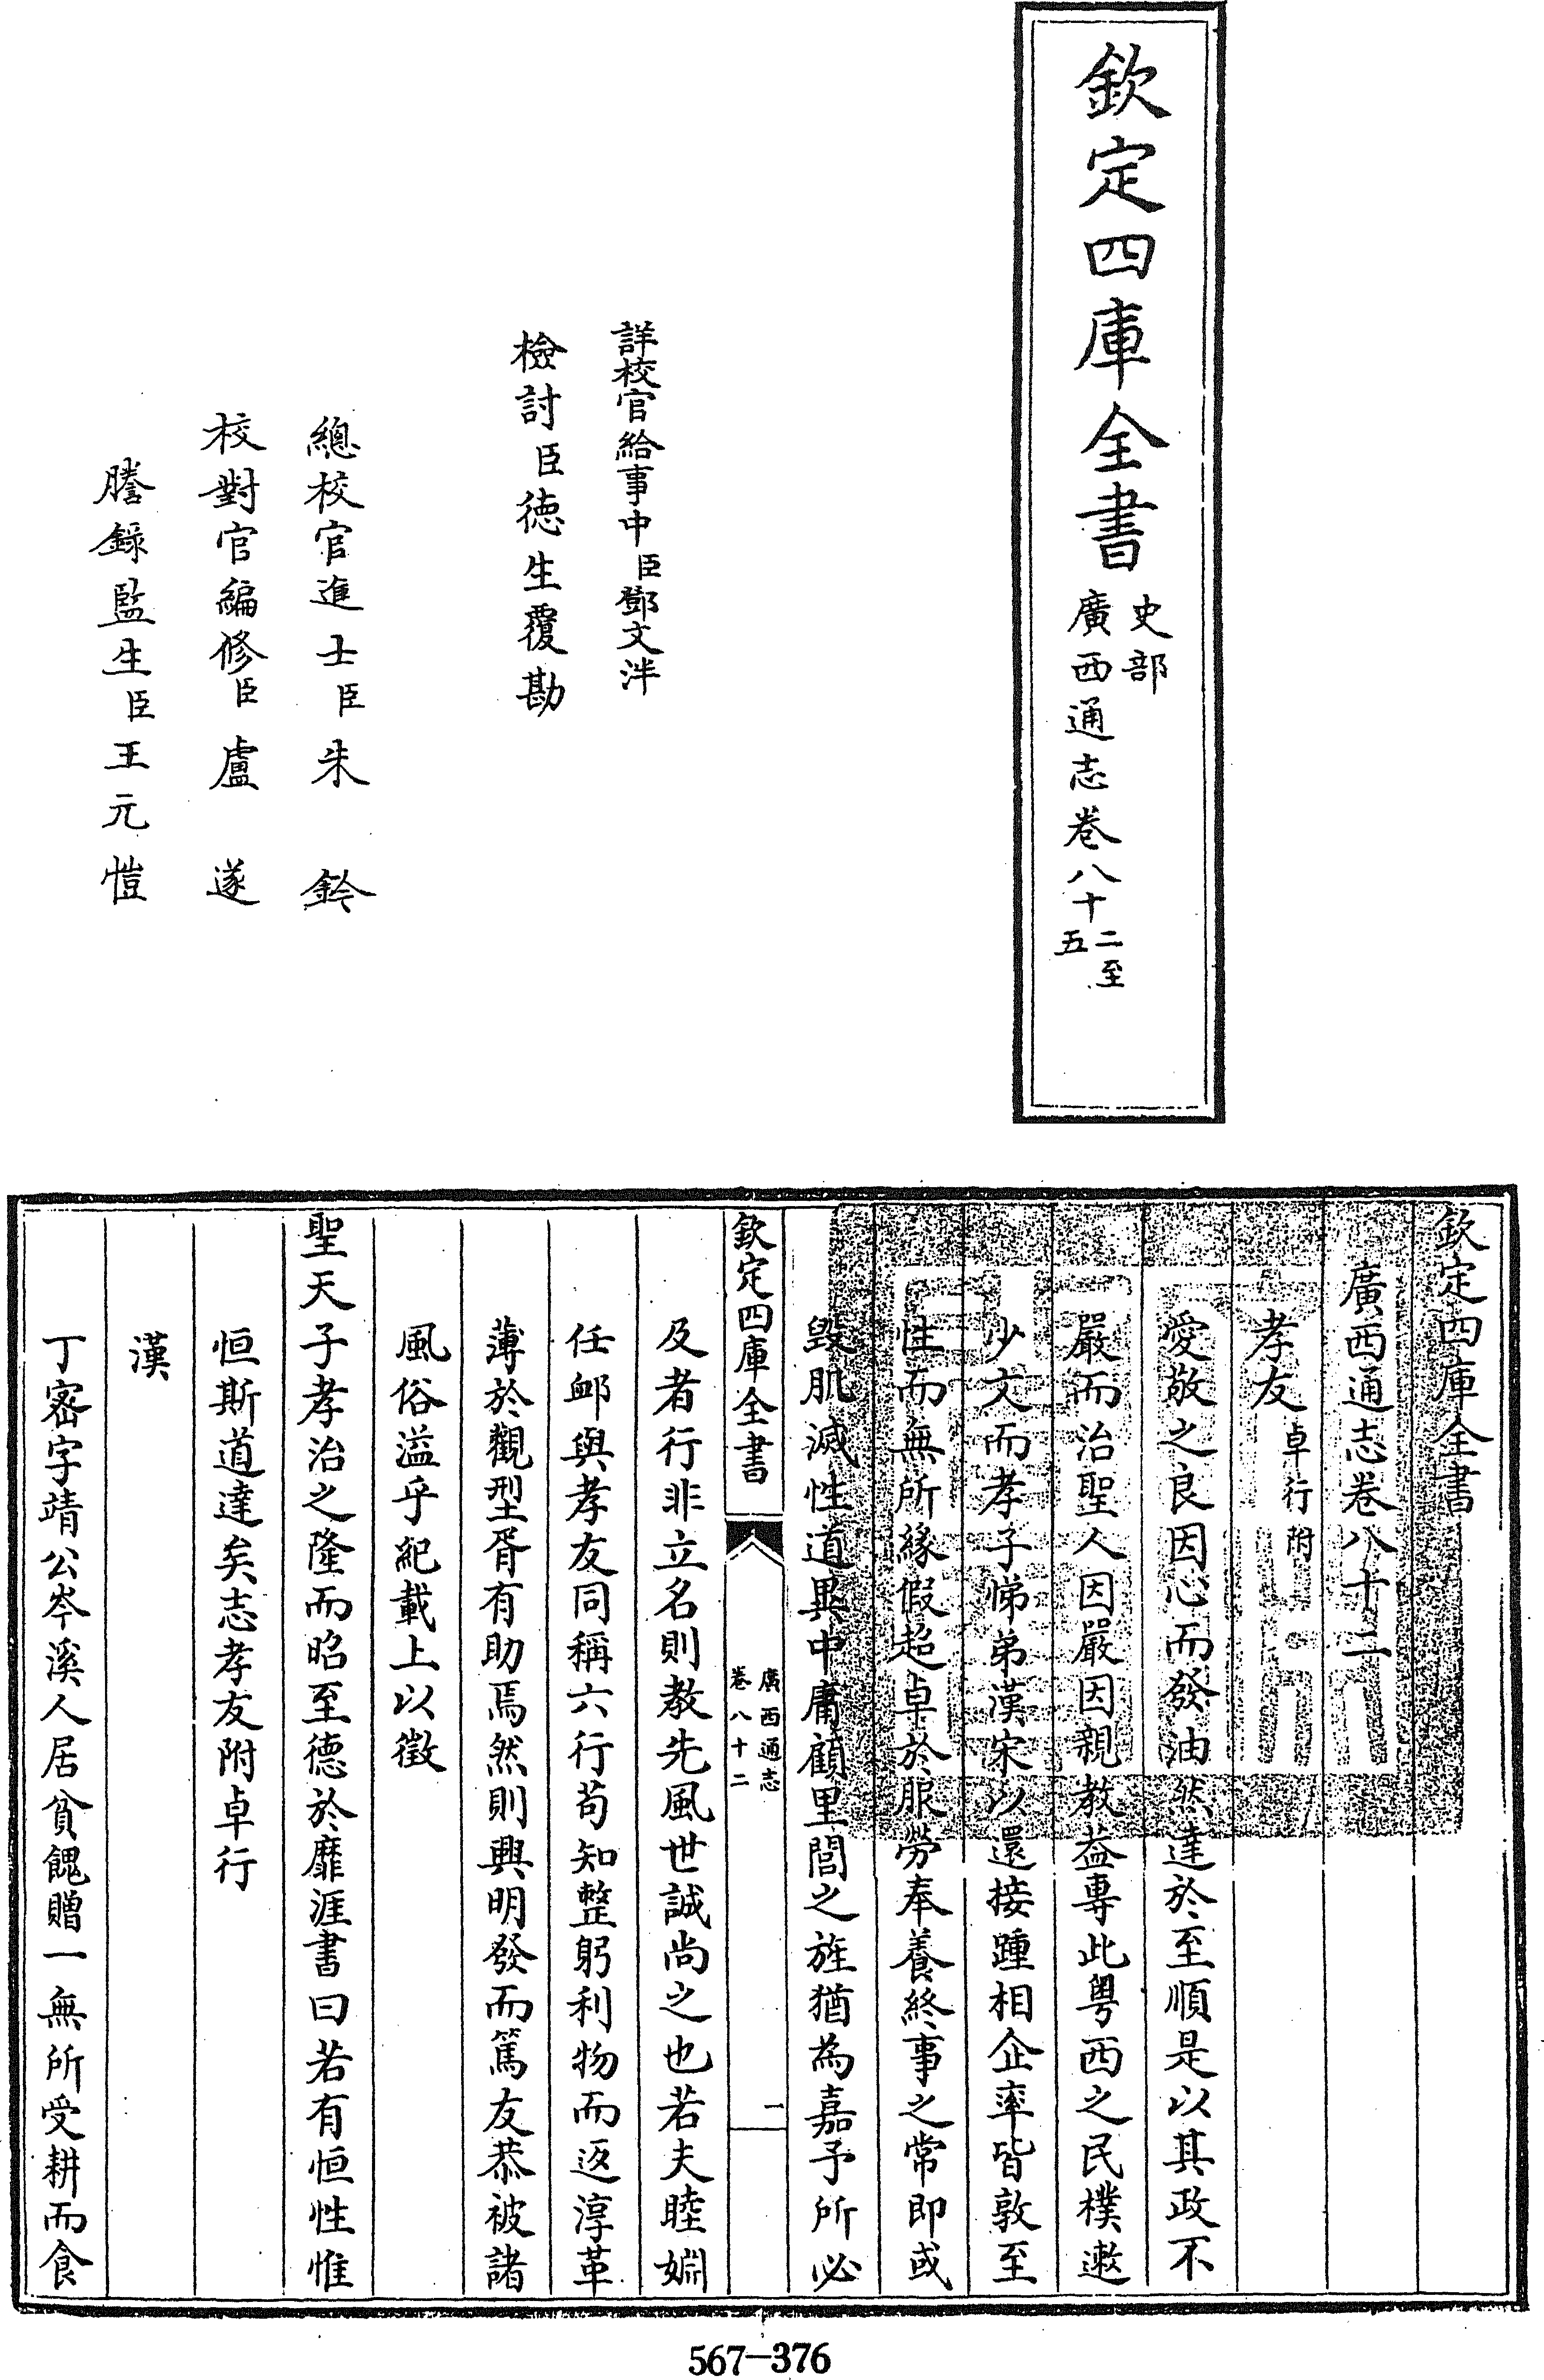 欽定四庫全書
史部
廣西通志卷八十二至五
詳校官給事中臣鄧文泮
檢討臣德生覆勘
總校官進士臣朱鈐
校對官編修臣盧遂
謄錄監生臣王元愷
欽定四庫全書
廣西通志卷八十二
孝友卓行附
愛敬之良因心而發油然達於至順是以其政不
嚴而治聖人因嚴因親教益專此粵西之民樸遬
少文而孝子悌弟漢宋以還接踵相企率皆敦至
性而無所緣假超卓於服勞奉養終事之常即或
毀肌滅性道異中庸顧里閭之旌猶為嘉予所必
欽定四庫全書
廣西通志
卷八十二
一
及者行非立名則教先風世誠尚之也若夫睦婣
任卹與孝友同稱六行苟知整躬利物而返淳革
薄於觀型胥有助焉然則興明發而篤友恭被諸
風俗溢乎紀載上以徵
聖天子孝治之隆而昭至德於靡涯書曰若有恒性惟
恒斯道達矣志孝友附卓行
漢
丁密字靖公岑溪人居貧餽贈一無所受耕而食
567-376